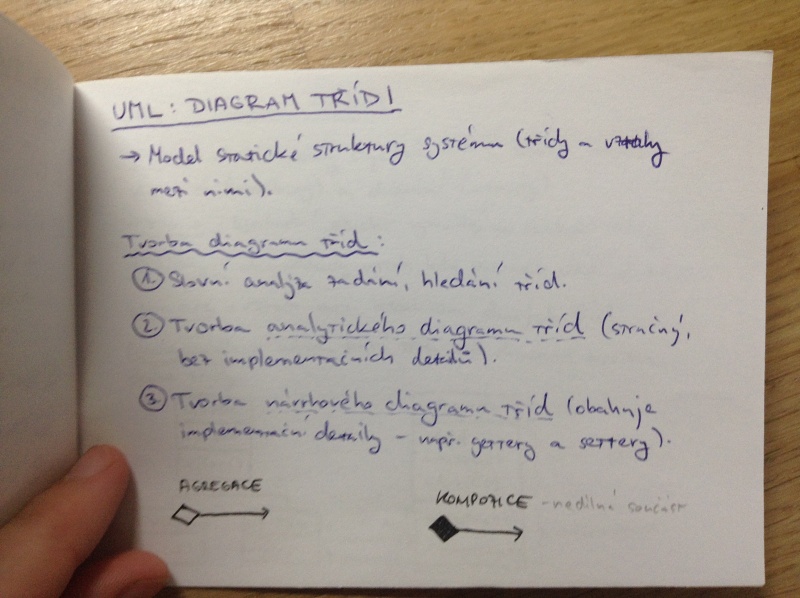 UML: DIAGRAM TŘÍD I
→ Model statické struktury systému (třídy a vztahy
mezi nimi).
Tvorba diagramu tříd:
1. Slovní analýza zadání, hledání tříd.
2. Tvorba analytického diagramu tříd (stručný,
bez implementačních detailů).
3. Tvorba návrhového diagramu tříd (obsahuje
implementační detaily – např. gettery a settery).
AGREGACE
KOMPOZICE - nedílná součást